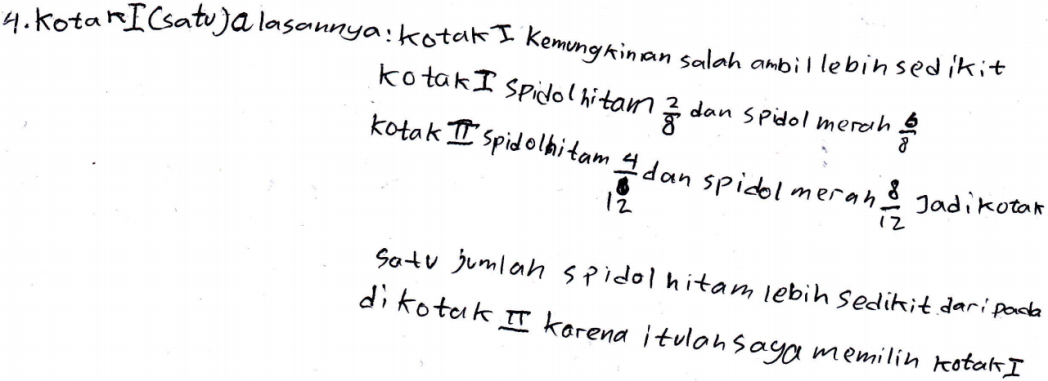 4. Kotak I (satu) alasannya : kotak I kemungkinan salah ambil lebih sedikit
kotak I spidol hitam 2/8 dan spidol merah 6/8
kotak II spidol hitam 4/12 dan spidol merah 8/12 Jadi kotak
satu jumlah spidol hitam lebih sedikit dari pada
di kotak II karena itulah saya memilih kotak I